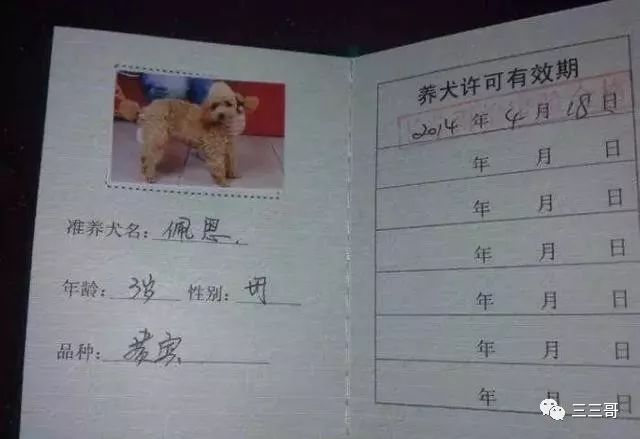 准养犬名：佩恩.
年龄：3岁 性别：母
品种：贵宾
养犬许可有效期
2014 年 4 月 18 日
年 月 日
年 月 日
年 月 日
年 月 日
年 月 日
年 月 日
三三哥